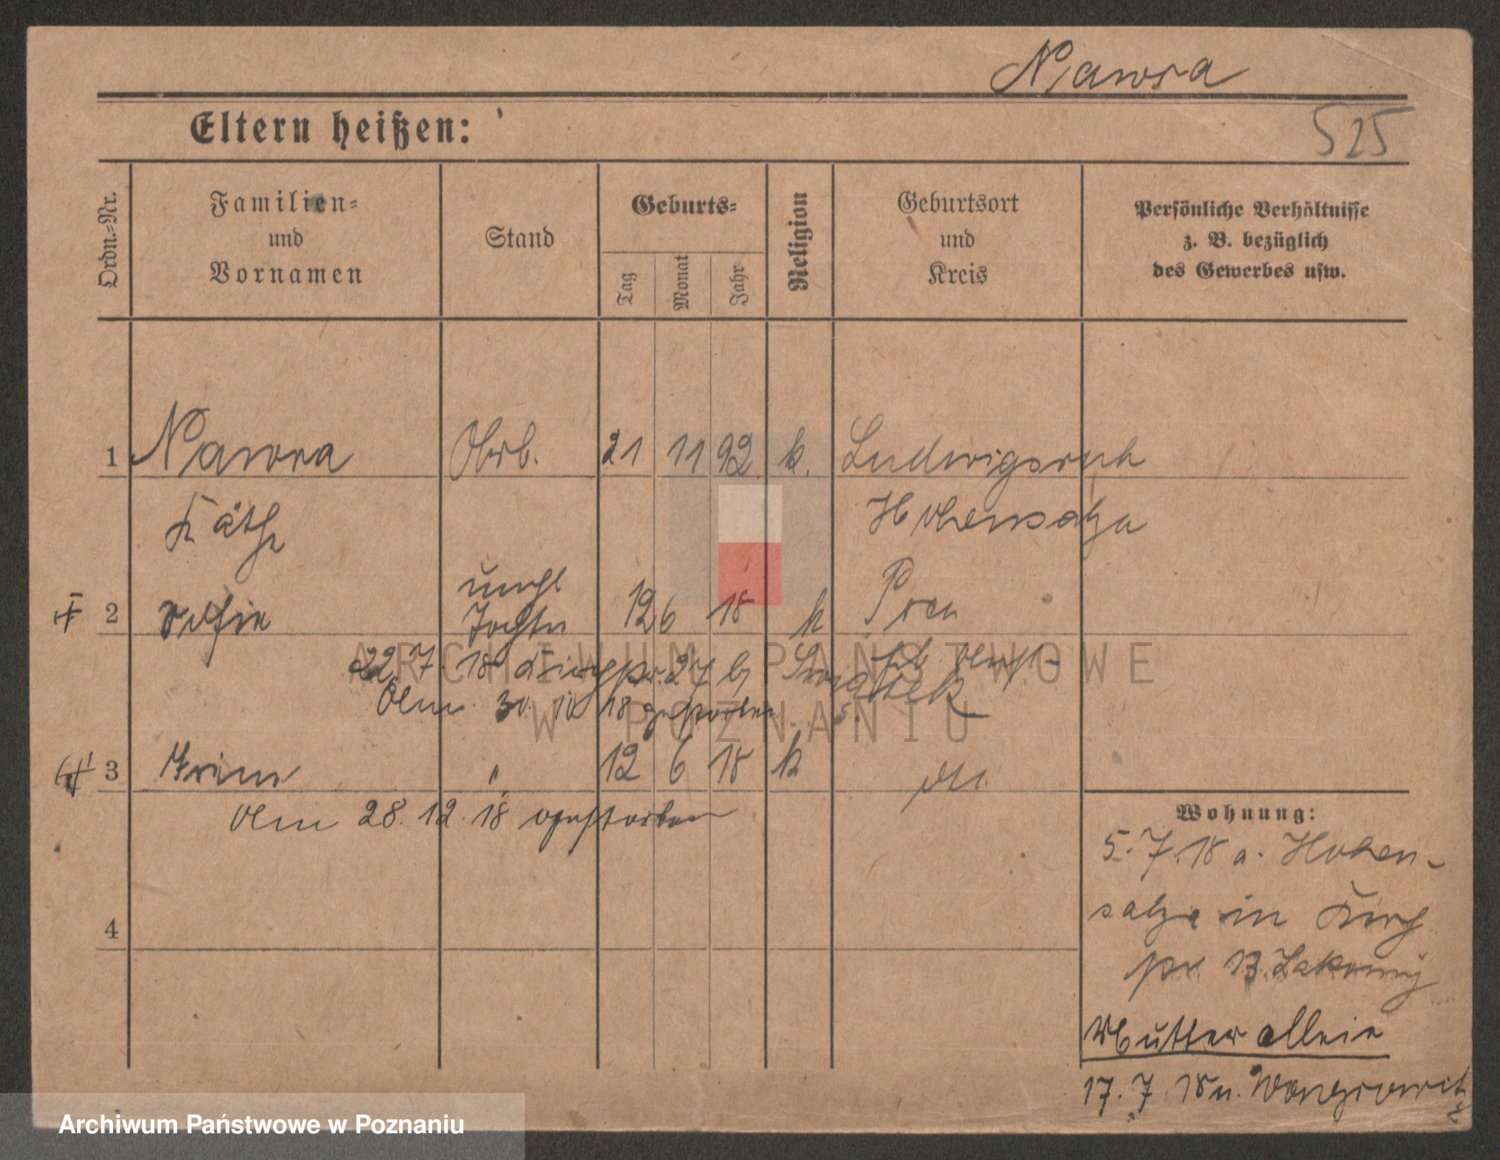 Nawra
525
Eltern heißen:
Ordn.-Nr.
Familien-
und
Vornamen
Stand
Geburts-
Tag
Monat
Jahr
Religion
Geburtsort
und
Kreis
Persönliche Verhältnisse
z. B. bezüglich
des Gewerbes usw.
1 Nawra Arb. 21 11 92 k. Ludwigsruh
Käthe Hohensalza
unehl
2 Sofie Tochter 12 6 18 k Posen
22 7. 18 27 b
30. 10 18 gestorben
3 Irene " 12 6 18 k do.
28. 12. 18 gestorben
4
Wohnung:
5. 7. 18 a. Hohen-
salza in
pr 13
Mutter alleie
17. 7. 18 n. Wongrowitz
ARCHIWUM PAŃSTWOWE
W POZNANIU
Archiwum Państwowe w Poznaniu